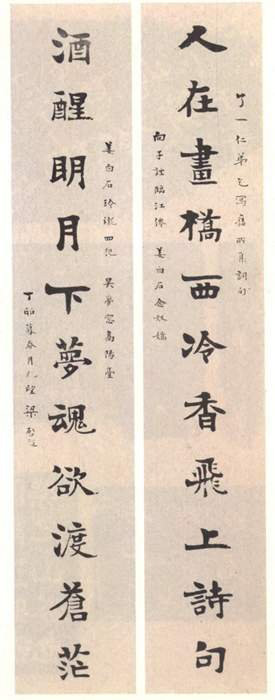 一仁弟乞寫舊所集詞句
人在畫橋西冷香飛上詩句
向子諲臨江仙 姜白石念奴嬌
姜白石玲瓏四犯 吳夢窗高陽臺
酒醒眀月下夢魂欲渡蒼茫
丁卯暮春 梁啟超